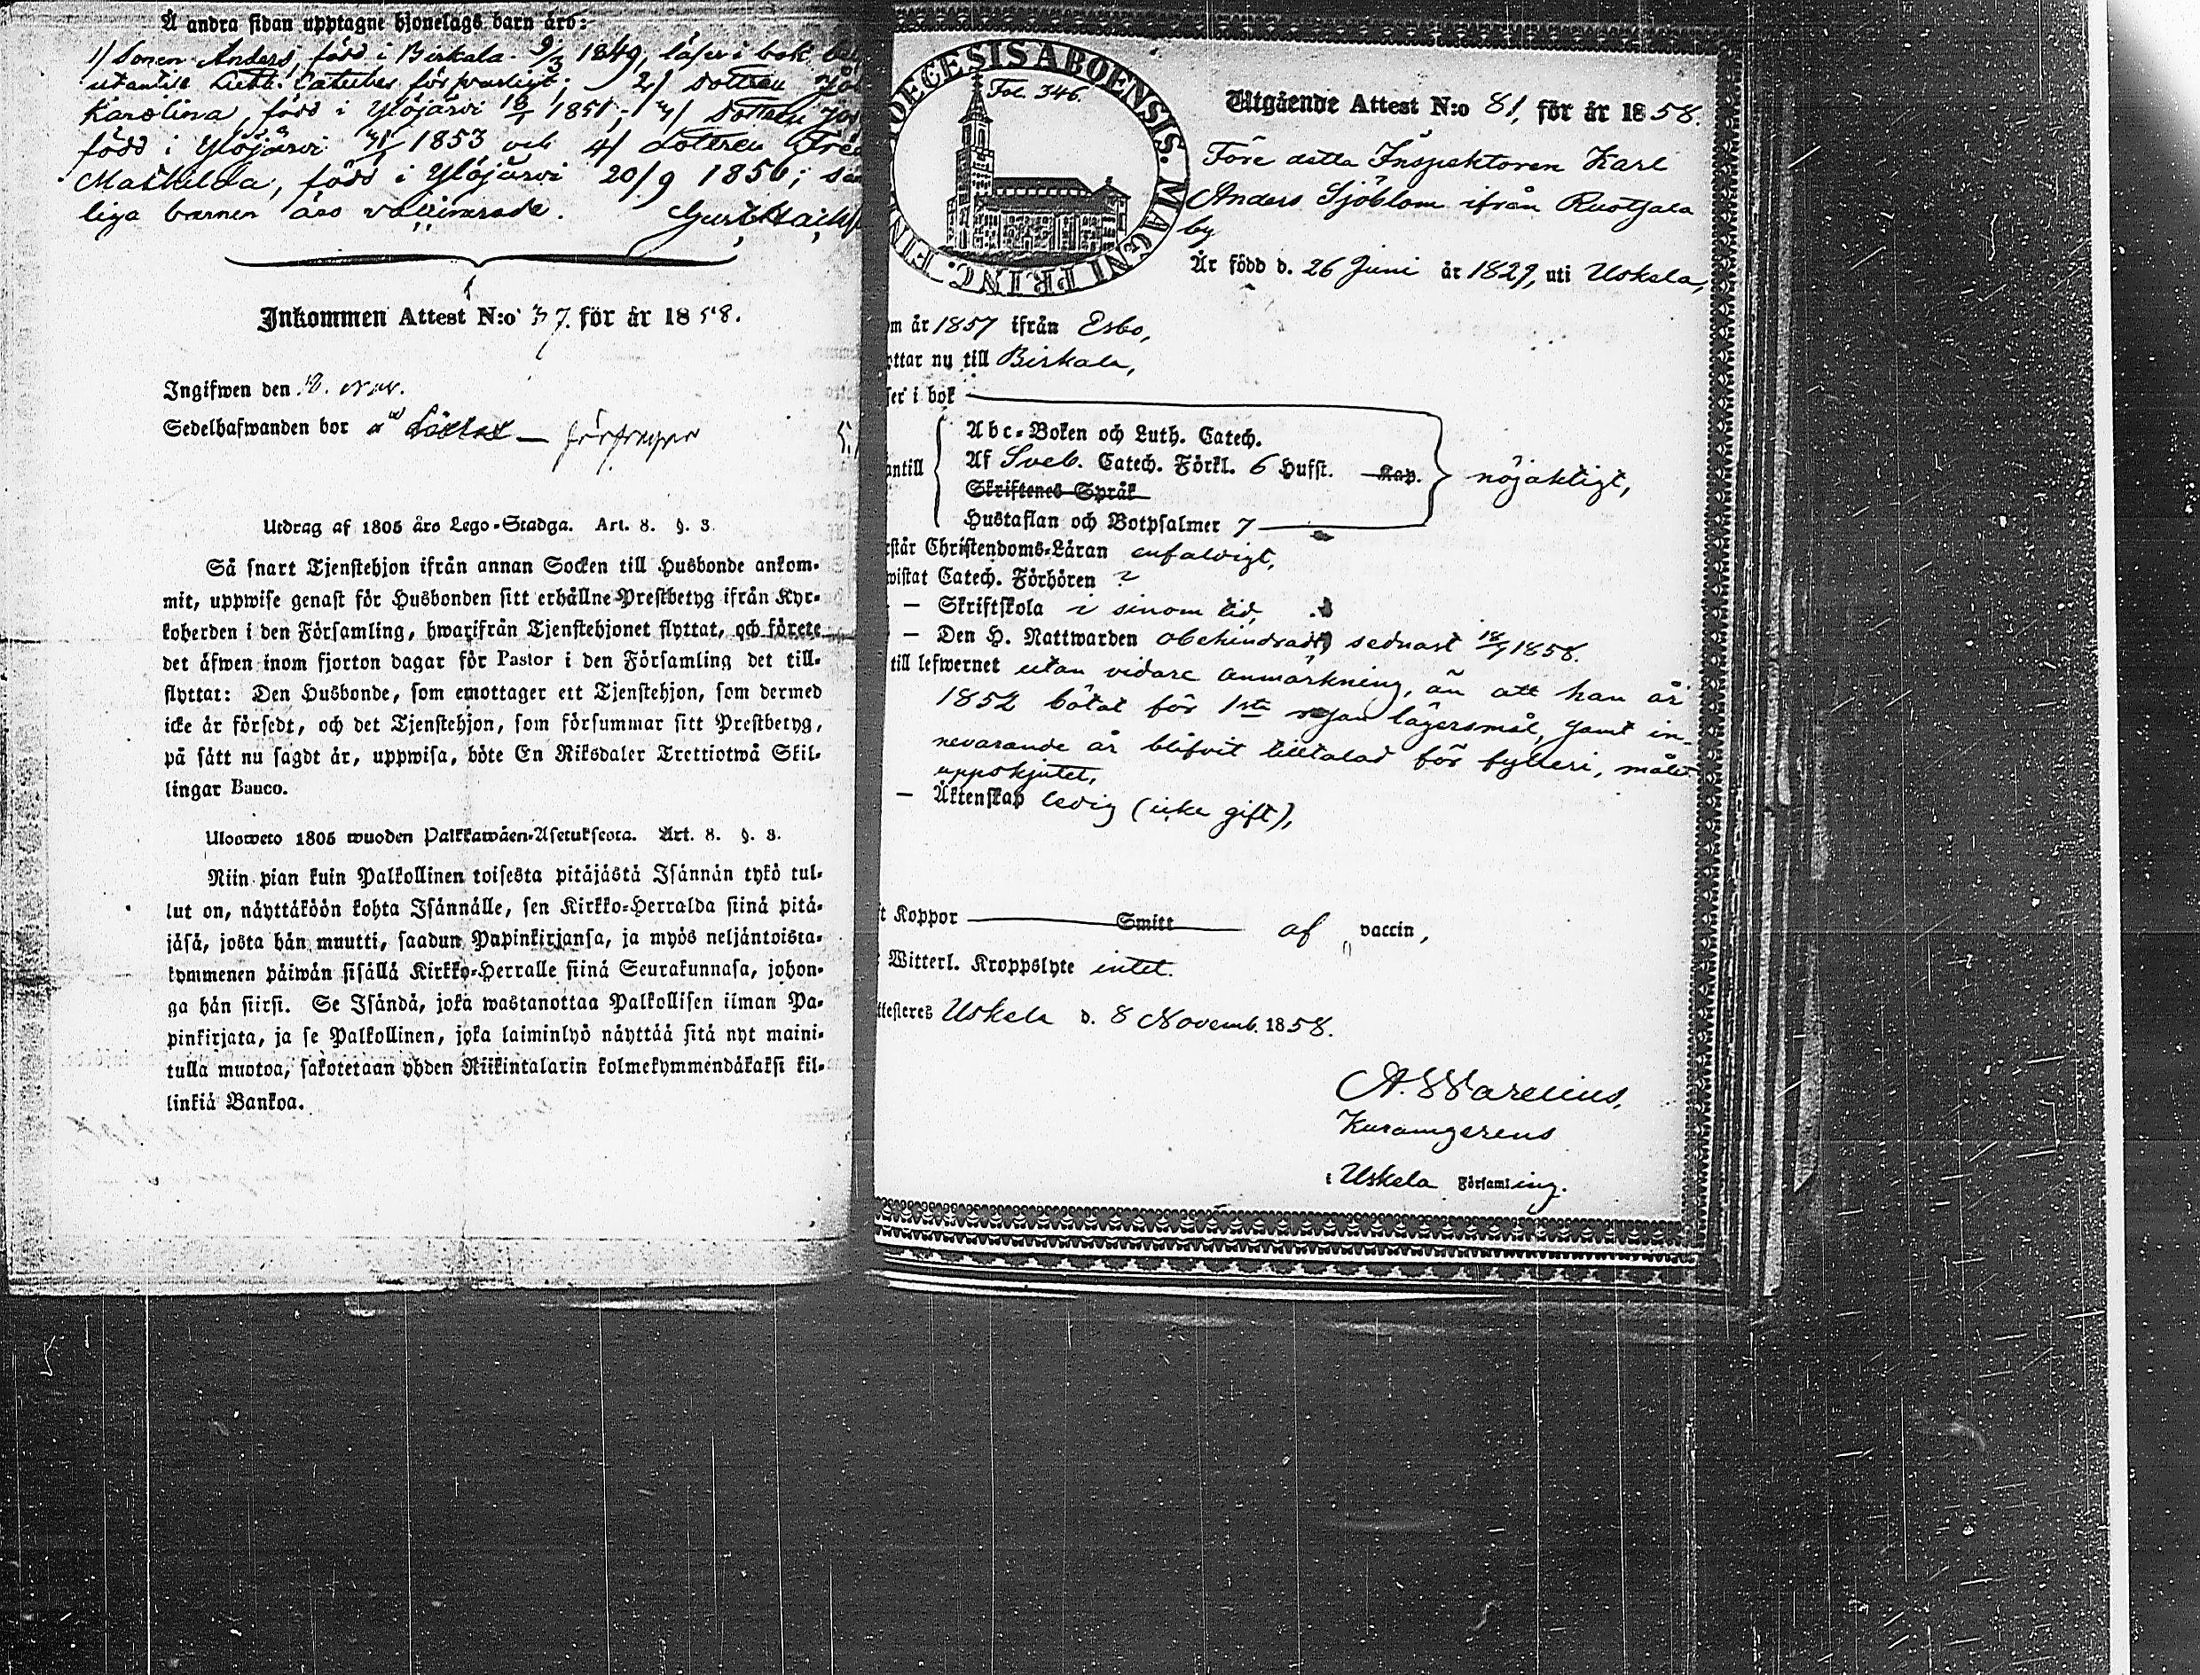 Å andra sidan upptagne hjonelags barn äro:
1/ Sonen Anders, född i Birkala 9/3 1849, läser i bok
utantill Luth. Cateches försvarligt; 2/ Dottren
Karolina, född i Ylöjärvi 1851; 3/ Dottren
född i Ylöjärvi 1853 och 4/ dottren
Mathilda, född i Ylöjärvi 20/9 1856;
liga barnen äro vaccinerade.
Inkommen Attest N:o 37. för år 1858.
Ingifwen den
Sedelhafwanden bor
Utdrag af 1805 års Lego-Stadga. Art. 8. §. 3.
Så snart Tjenstehjon ifrån annan Socken till Husbonde ankom-
mit, uppwise genast för Husbonden sitt erhållne Prestbetyg ifrån Kyr-
koherden i den Församling, hwarifrån Tjenstehjonet flyttat, och förete
det äfwen inom fjorton dagar för Pastor i den Församling det till-
flyttat: Den Husbonde, som emottager ett Tjenstehjon, som dermed
icke är försedt, och det Tjenstehjon, som försummar sitt Prestbetyg,
på sätt nu sagdt är, uppwisa, böte En Riksdaler Trettiotwå Skil-
lingar Banco.
Ulosweto 1805 wuoden Palkkawäen-Asetuksesta. Art. 8. §. 3.
Niin pian kuin Palkollinen toisesta pitäjästä Isännän tykö tul-
lut on, näyttäköön kohta Isännälle, sen Kirkko-Herralda siinä pitä-
jäsä, josta hän muutti, saadun Papinkirjansa, ja myös neljäntoista-
kymmenen päiwän sisällä Kirkko-Herralle siinä Seurakunnasa, johon-
ga hän siirsi. Se Isändä, joka wastanottaa Palkollisen ilman Pa-
pinkirjata, ja se Palkollinen, joka laiminlyö näyttää sitä nyt maini-
tulla muotoa, sakotetaan yhden Riikintalarin kolmekymmendäkaksi kil-
linkiä Bankoa.
DIOECESIS ABOENSIS. MAGNI PRINC. FIN
Fol. 346.
Utgående Attest N:o 81, för år 1858.
Före detta Inspektoren Karl
Anders Sjöblom ifrån Ruotsala
by
Är född d. 26 Juni år 1829, uti Uskela,
om år 1857 ifrån Esbo,
ottar nu till Birkala,
ser i bok
antill
Abc-Boken och Luth. Catech.
Af Sveb. Catech. Förkl. 6 Hufst. Kap.
Skriftenes Språk
Hustaflan och Botpsalmer 7
nöjaktigt,
rstår Christendoms-Läran enfaldigt,
wistat Catech. Förhören 2
— Skriftskola i sinom tid,
— Den H. Nattwarden obehindrad, sednast 18/7 1858.
till lefwernet utan vidare anmärkning, än att han år
1852 bötat för 1sta resan lägersmål, samt in-
nevarande år blifvit tilltalad för fylleri, målet
uppskjutet,
— Äktenskap ledig (icke gift),
t Koppor Smitt af vaccin,
Witterl. Kroppslyte intet.
ttesteres Uskela d. 8 Novemb. 1858.
A. Warelius,
Kuramgerens
i Uskela Församling.